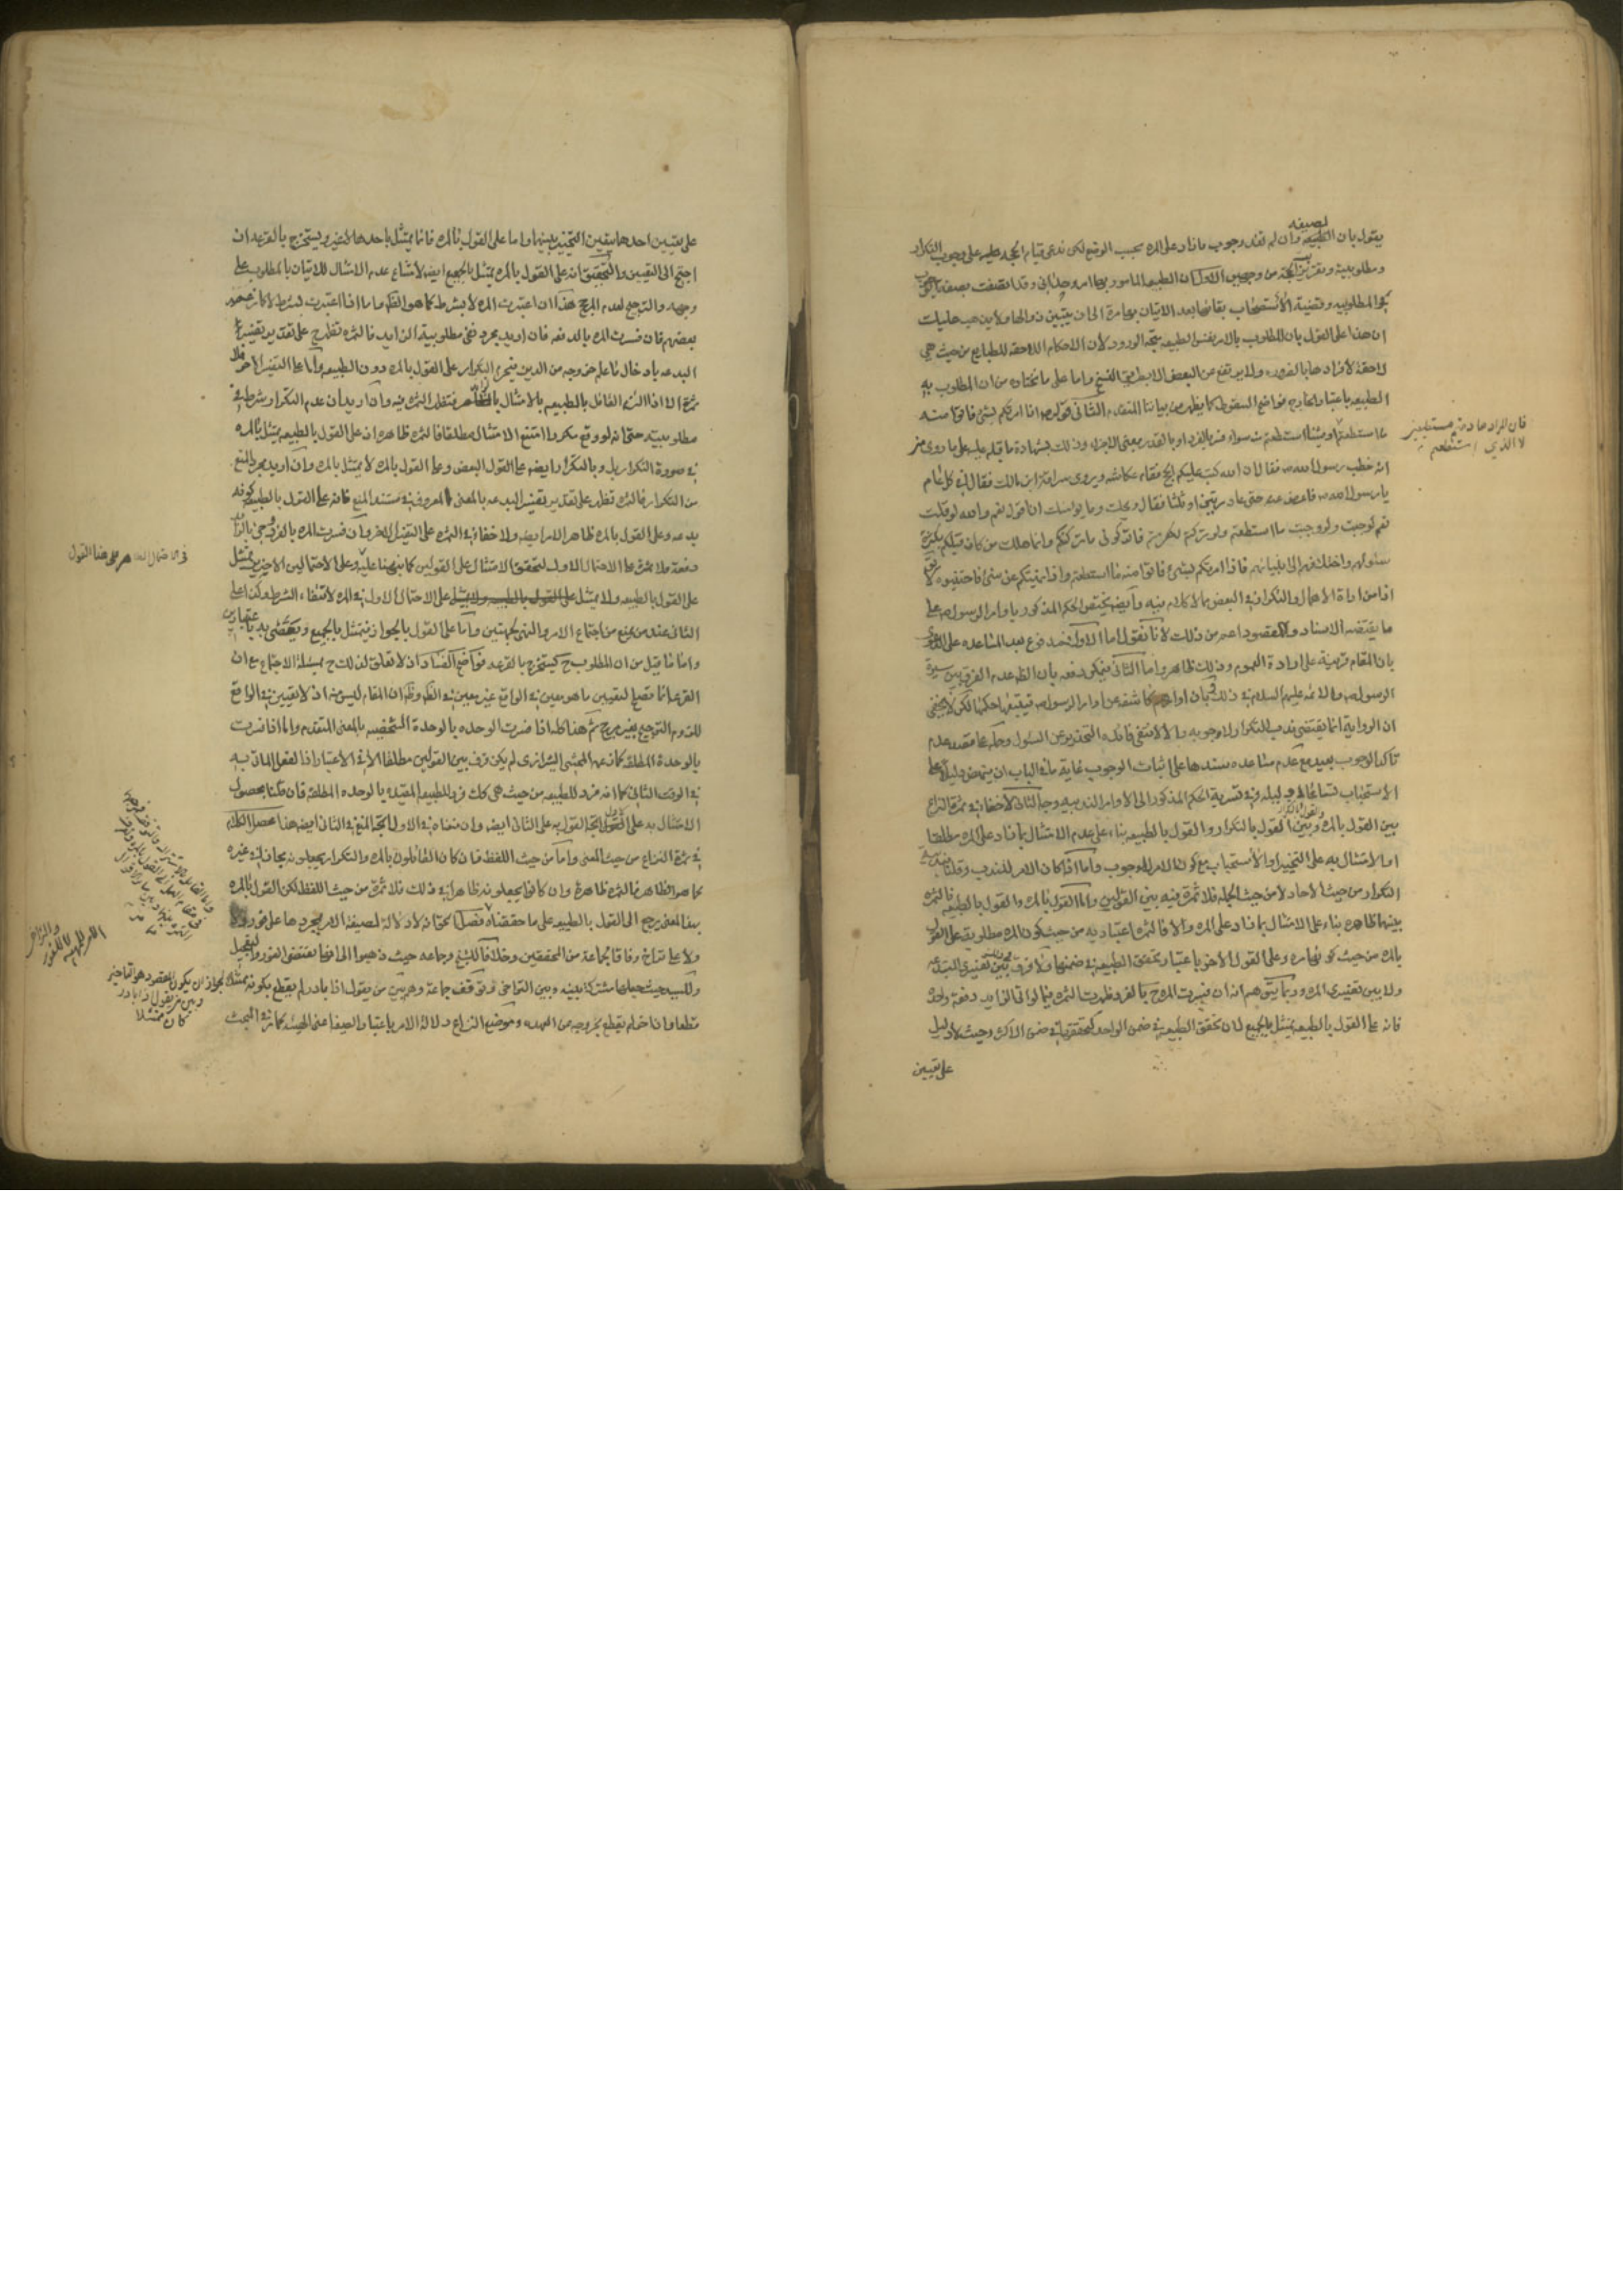 يقول بان الصيغه وان لم تفد وجوب ما زاد على المره بحسب الوضع لكن ندعى قيام الحجه عليه على وجوب التكرار
ومطلوبيته وتقرير الحجه من وجهين الاول ان الطبيعه المامور بها امر وحدانى وقد اتصفت بصفة الوجوب
بحق المطلوبيه وقضية الاستصحاب بقائها بعد الاتيان بها مرة الى ان يتبين زوالها ولا يذهب عليك
ان هذا على القول بان المطلوب بالامر نفس الطبيعه متجه الورود لان الاحكام اللاحقه للطبايع من حيث هى
لاحقة لافرادها بالضروره ولا يرتفع عن البعض الا بطريق النسخ واما على ما نختاره من ان المطلوب به
الطبيعه باعتبار الخارج فواضح السقوط كما يظهر من بياننا المتقدم الثانى قوله ص اذا امرتكم بشئ فاتوا منه
ما استطعتم او شيئا استطعتم سواء فسر بالفرد او بالقدر بمعنى الاجزاء وذلك بشهادة ما قبله عليه على ما روى من
انه خطب رسول الله ص فقال ان الله كتب عليكم الحج فقام عكاشه ويروى سراقة ابن مالك فقال افى كل عام
يا رسول الله ص فاعرض عنه حتى عاد مرتين او ثلثا فقال ويحك وما يؤمنك ان اقول نعم والله لو قلت
نعم لوجبت ولو وجبت ما استطعتم ولو تركتم لكفرتم فاتركونى ما تركتكم وانما هلك من كان قبلكم بكثرة
سؤالهم واختلافهم الى انبيائهم فاذا امرتكم بشئ فاتوا منه ما استطعتم واذا نهيتكم عن شئ فاجتنبوه لا يق
اذا من اداة الاهمال والتكرار فى البعض مما لا كلام فيه وايضا يختص الحكم المذكور باوامر الرسول ص على
ما يقتضيه الاسناد والمقصود اعم من ذلك لانا نقول اما الاول فمدفوع بعد المساعده على الدعوى
بان المقام قرينة على ارادة العموم وذلك ظاهر واما الثانى فيمكن دفعه بان الظ عدم الفرق بين سيرة
الرسول ص والائمه عليهم السلام فى ذلك وبان اوامرهم كاشفه عن اوامر الرسول ص فيتبعها حكمها لكن لا يخفى
ان الروايه انما يقتضى ندب التكرار لا وجوبه والا لانتفى فائدة التحذير عن السؤال وحمله على قصد عدم
تاكد الوجوب بعيد مع عدم مساعده سندها على اثبات الوجوب غاية ما فى الباب ان ينهض دليلا على
الاستحباب تسامحا فى دليله وفى تسرية الحكم المذكور الى الاوامر الندبيه وجه الثالث لا خفاء فى ثمرة النزاع
بين القول بالمره وبين القول بالتكرار والقول بالطبيعه بناء على عدم الامتثال بما زاد على المره مطلقا
اما الامتثال به على التخيير او الاستحباب مع كون الامر للوجوب واما اذا كان الامر للندب وقلنا
التكرار من حيث الآحاد لا من حيث الجمله فلا ثمرة فيه بين القولين واما القول بالمره والقول بالطبيعه فالثمره
بينهما ظاهره بناء على الامتثال بما زاد على المره والا فالثمره اعتباريه من حيث كون المره مطلوبه على القول
بالمره من حيث كونها مره وعلى القول الاخر باعتبار تحقق الطبيعه فى ضمنها ولا فرق بين تفسيرى
ولا بين تفسيرى المره وربما يتوهم انه ان فسرت المره ح بالفرد ظهرت الثمره فيما لو اتى بالزايد دفعة واحده
فانه على القول بالطبيعه يمتثل بالجميع لان تحقق الطبيعه فى ضمن الواحد كتحققها فى ضمن الاكثر وحيث لا دليل
على تعيين
فان المراد ما دمتم مستطيعين
لا الذي استطعتم
على تعيين احدها يتعين التخيير بينها واما على القول بالمره فانما يمتثل باحدها لا غير ويستخرج بالقرعه ان
احتج الى التعيين والتحقيق انه على القول بالمره يمتثل بالجميع ايضا لامتناع عدم الامتثال للاتيان بالمطلوب على
وجهه والترجيح لعدم المرجح هذا ان اعتبرت المره لا بشرط كما هو الظ واما اذا اعتبرت بشرط لا كما زعمه
بعضهم فان فسرت المره بالدفعه فان اريد مجرد نفى مطلوبية الزايد فالثمره تظهر ح على تقدير تفسير
البدعه بادخال ما علم خروجه من الدين فيحرم التكرار على القول بالمره دون الطبيعه واما على التفسير الاخر فلا
ثمرة الا اذا التزم القائل بالطبيعه بالامتثال بالتكرار فتظهر الثمره فيه وان اريد ان عدم التكرار شرط فى
مطلوبيته حتى انه لو وقع مكررا امتنع الامتثال مطلقا فالثمره ظاهره اذ على القول بالطبيعه يمتثل بالمره
فى صورة التكرار بل وبالتكرار ايضا على القول البعض وعلى القول بالمره لا يمتثل بالمره وان اريد مجرد المنع
من التكرار فالثمره تظهر على تقدير تفسير البدعه بالمعنى المعروف فى مستند المنع فانه على القول بالطبيعه كونه
بدعه وعلى القول بالمره ظاهر الامر ايضا ولا خفاء فى الثمره على التفسير الاخر وان فسرت المره بالفرد وجئ بالزايد
دفعة فلا ثمرة على الاحتمال الاول لتحقق الامتثال على القولين كما نبهنا عليه وعلى الاحتمالين الاخيرين يمتثل
على القول بالطبيعه ولا يمتثل على الاحتمال الاول فى المره لانتفاء الشرط وكذا على
الثانى عند من يمنع من اجتماع الامر والنهى بجهتين واما على القول بالجواز فيمتثل بالجميع ويعصى به باعتبارين
واما ما قيل من ان المطلوب ح يستخرج بالقرعه فواضح الفساد اذ لا تعلق لذلك ح بمسئلة الاجتماع مع ان
القرعه انما تصلح لتعيين ما هو معين فى الواقع غير معين فى الظ وظ ان المقام ليس منه اذ لا تعيين فى الواقع
للزوم الترجيح بغير مرجح ثم هذا كله اذا فسرت الوحده بالوحدة الشخصيه بالمعنى المتقدم واما اذا فسرت
بالوحدة المطلقه كما زعمه المحشى الشيرازى لم يكن فرق بين القولين مطلقا الا فى الاعتبار اذ الفعل الماتى به
فى الوقت الثانى كما انه فرد للطبيعه من حيث هى كك فرد للطبيعه المقيده بالوحده المطلقه فان قلنا بحصول
الامتثال به على القول الاول اتجه القول به على الثانى ايضا وان منعناه فى الاول اتجه المنع فى الثانى ايضا هذا محصل الكلام
فى ثمرة النزاع من حيث المعنى واما من حيث اللفظ فان كان القائلون بالمره والتكرار يجعلونه مجازا فى غيره
كما هو الظاهر فالثمره ظاهرة وان كانوا يجعلونه ظاهرا فى ذلك فلا ثمرة من حيث اللفظ لكن القول بالمره
بهذا المعنى يرجع الى القول بالطبيعه على ما حققناه فصل الحق انه لا دلالة لصيغة الامر بمجردها على فور
ولا على تراخ وفاقا لجماعة من المحققين وخلافا للشيخ وجماعه حيث ذهبوا الى انها تقتضى الفور والتعجيل
وللسيد حيث جعلها مشتركا بينه وبين التراخى وتوقف جماعة وهم بين من يقول اذا بادر لم يقطع بكونه ممتثلا لجواز ان يكون المقصود هو التاخير
وبين من يقول اذا بادر
كان ممتثلا
قطعا وان اخر لم يقطع بخروجه عن العهده وموضع النزاع دلالة الامر باعتبار الصيغه اعنى الهيئه كما مر فى المبحث